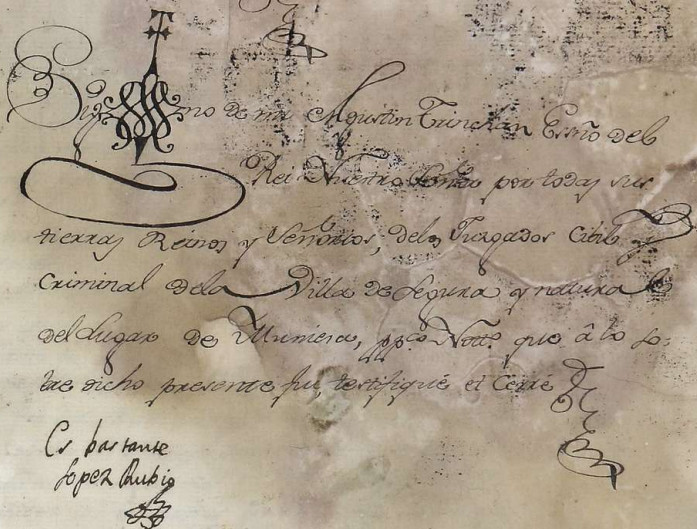 Sig no de mi Agustin Trinchan Essño del
Rei Nuestro Señor por todas sus
tierras Reinos y Señorios, delos Juzgados Cibil y
Criminal dela Villa de Segura y natural
del Lugar de Muniesa, ppco Nott. que â lo so-
bre dicho presente fui, testifiqué et Cerré
Es bastante
Lopez Rubio